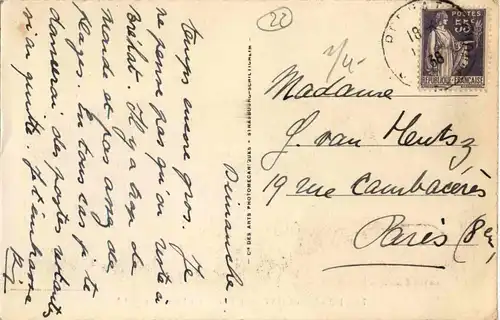 Dimanche.
temps encore gros. Je
ne pense pas qu'on reste à
Bréhat. Il y a trop de
monde et pas assez de
plages. En tous cas je te
donnerai des postes restantes
si on quitte. Je t'embrasse
22
Madame
J. van Heutsz
19 rue Cambacérès
Paris (8e)
Cie DES ARTS PHOTOMECANIQUES - STRASBOURG-SCHILTIGHEIM
POSTES
55c
REPUBLIQUE FRANÇAISE
18
36